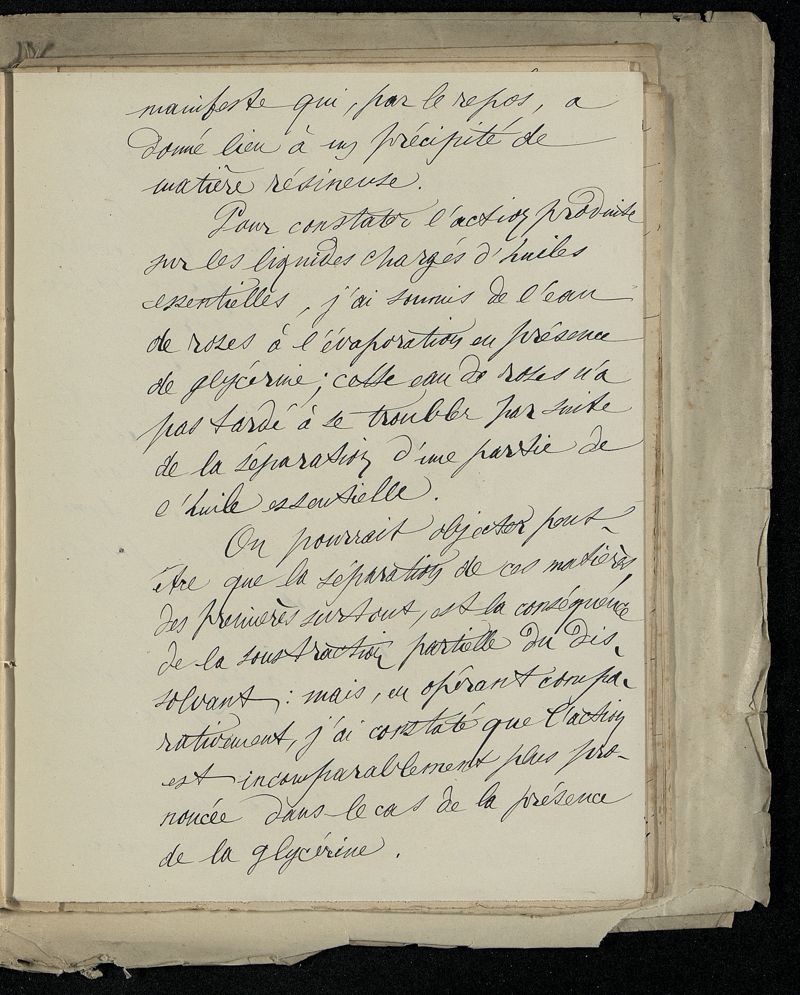 manifeste qui, par le repos, a
donné lieu à un précipité de
matière résineuse.
Pour constater l'action produite
sur les liquides chargés d'huiles
essentielles, j'ai soumis de l'eau
de roses à l'évaporation en présence
de glycérine; cette eau de roses n'a
pas tardé à se troubler par suite
de la séparation d'une partie de
l'huile essentielle.
On pourrait objecter peut-
être que la séparation de ces matières
des premières surtout, est la conséquence
de la soustraction partielle du dis-
solvant: mais, en opérant compa-
rativement, j'ai constaté que l'action
est incomparablement plus pro-
noncée dans le cas de la présence
de la glycérine.